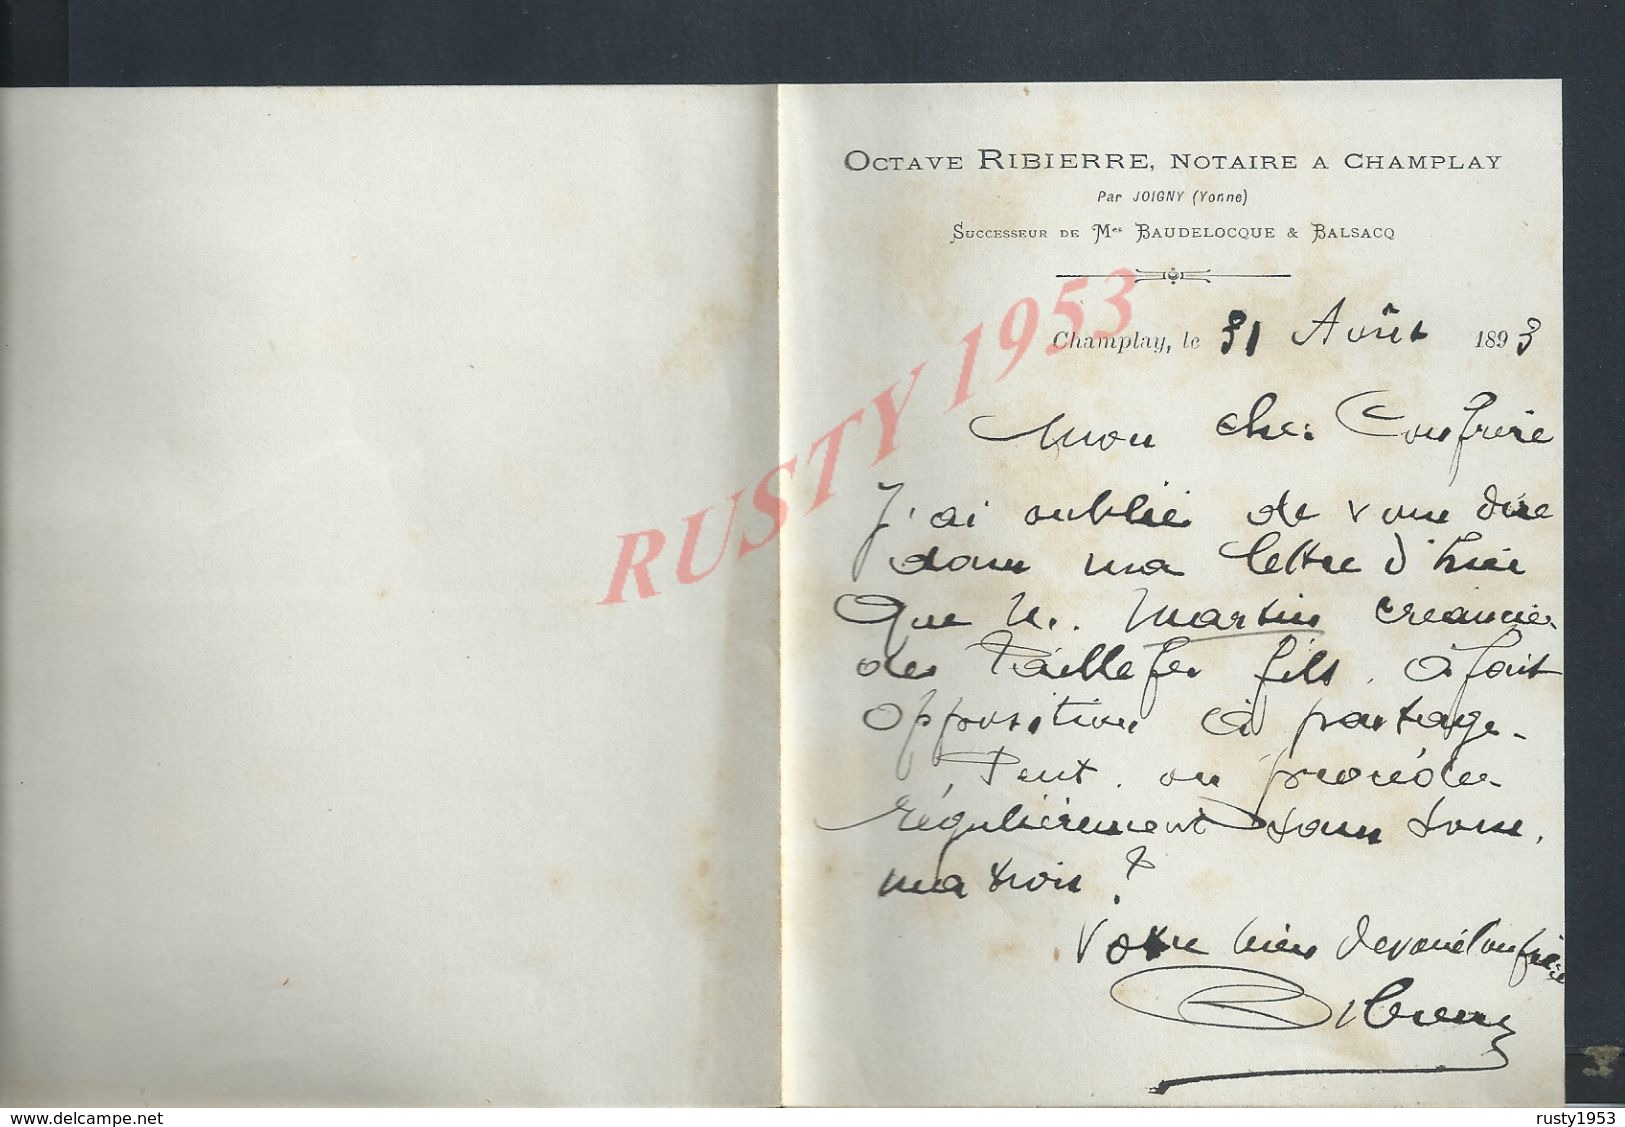 OCTAVE RIBIERRE, NOTAIRE A CHAMPLAY
Par JOIGNY (Yonne)
SUCCESSEUR DE Mes BAUDELOCQUE & BALSACQ
Champlay, le 31 Août 1893
Mon cher Confrère
J'ai oublié de vous dire
dans ma lettre d'hier
que M. Martin créancier
de Taillefer fils, a fait
opposition à partage.
Peut-on procéder
régulièrement sans
ma trois?
Votre bien dévoué Confrère
Ribierre
RUSTY 1953
www.delcampe.net
rusty1953